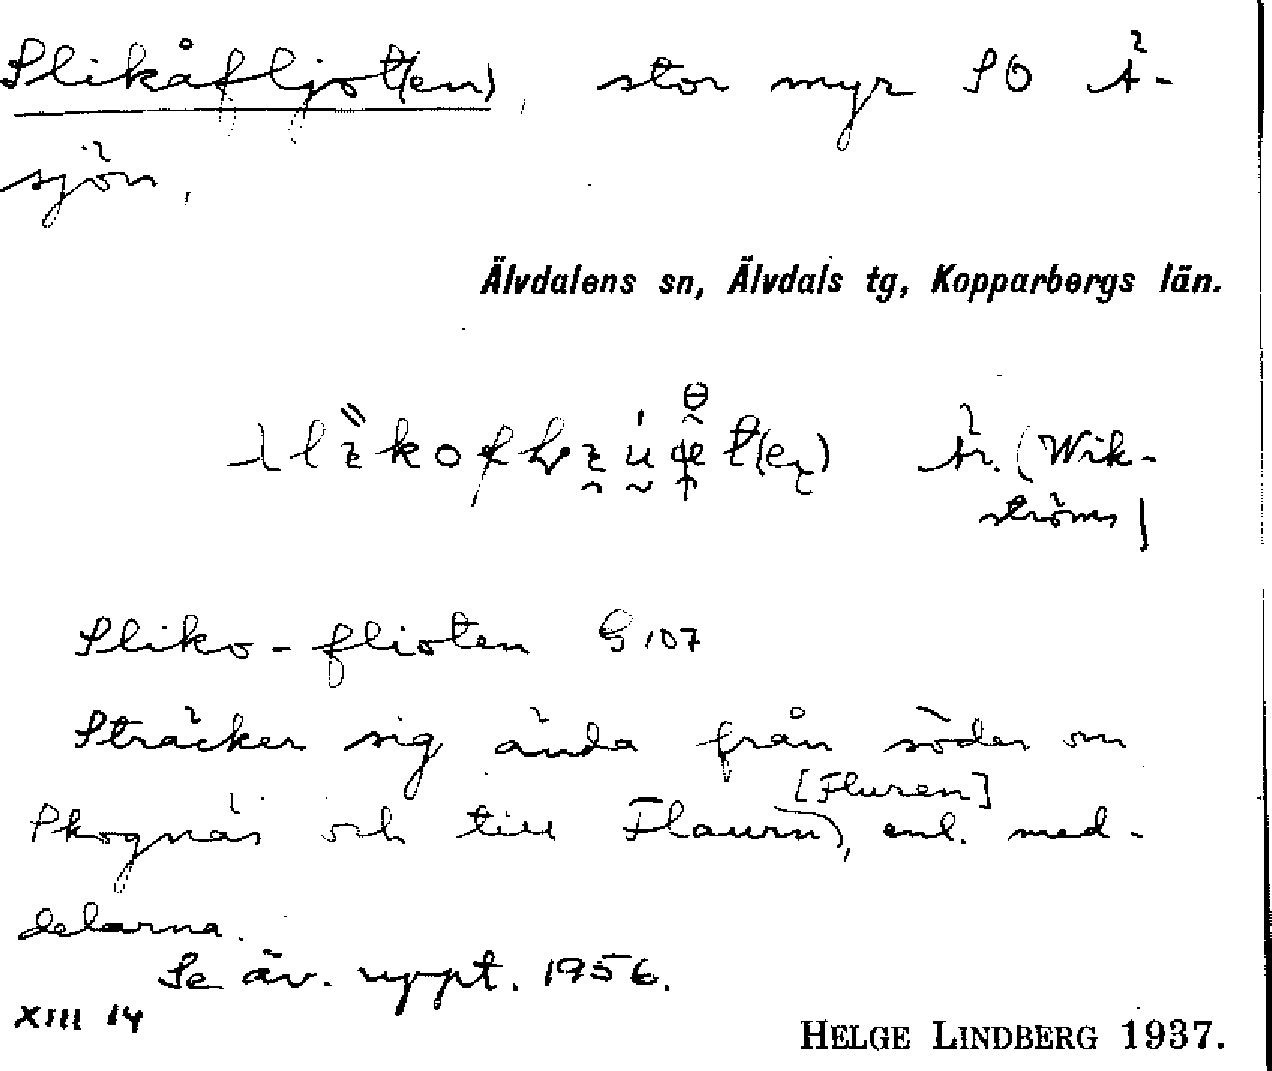 Slikåfljot(en), stor myr SO Ä-
sjön.
Älvdalens sn, Älvdals tg, Kopparbergs län.
Är. (Wik-
ströms)
Sliko-flioten G 107
Sträcker sig ända från söder om
Skognäs och till Flaurn), enl. med-
[Fluren]
delarna.
Se äv. uppt. 1956.
XIII 14
HELGE LINDBERG 1937.